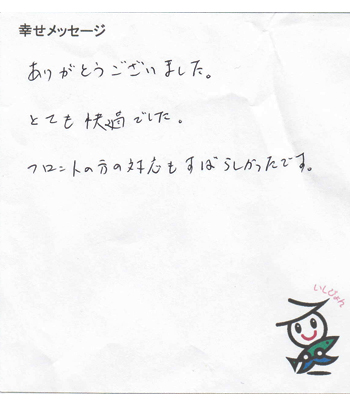 幸せメッセージ
ありがとうございました。
とても快適でした。
フロントの方の対応もすばらしかったです。
いしぴょん